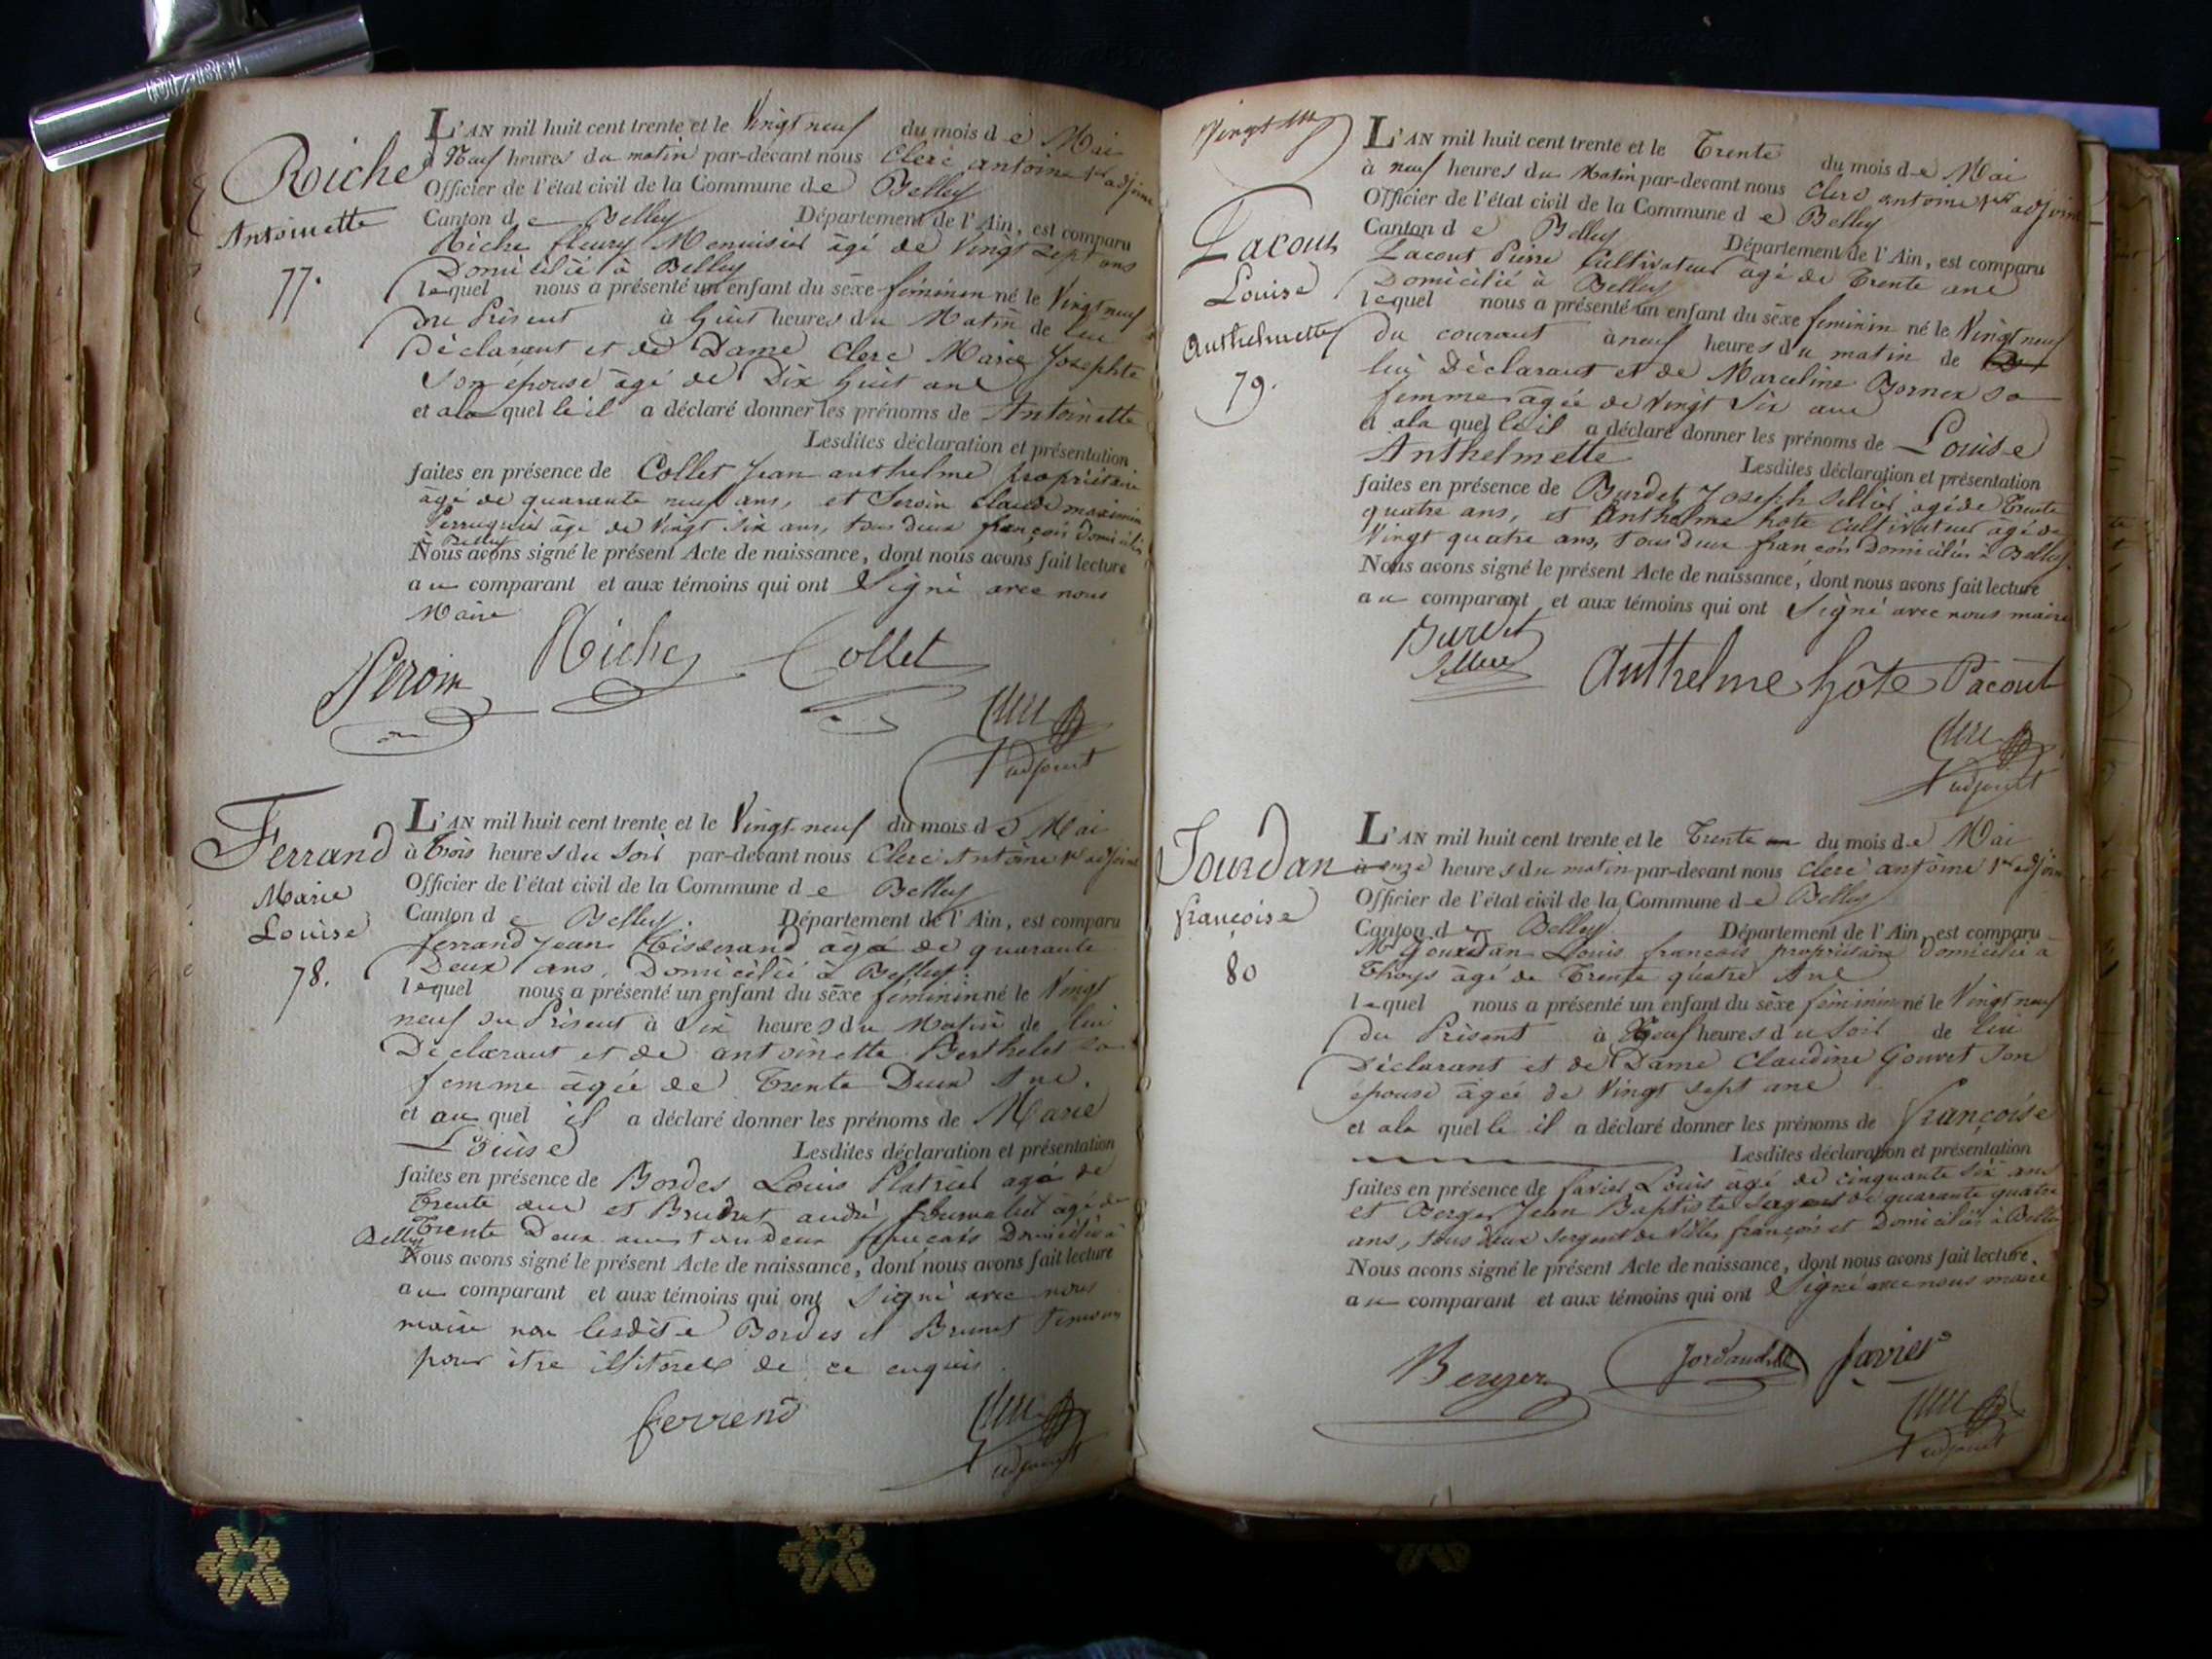 Riche
Antoinette
77.
L'AN mil huit cent trente et le Vingt neuf du mois de Mai
à Neuf heures du matin par-devant nous Clerc antoine 1er adjoint
Officier de l'état civil de la Commune de Belley
Canton de Belley Département de l'Ain, est comparu
Riche fleury Menuisier âgé de Vingt sept ans
Domicilié à Belley
lequel nous a présenté un enfant du sèxe féminin né le Vingt neuf
du Présent à huit heures du Matin de lui
Déclarant et de Dame Clerc Marie Josephte
son épouse âgé de Dix huit ans
et a la quelle il a déclaré donner les prénoms de Antoinette
Lesdites déclaration et présentation
faites en présence de Collet Jean anthelme propriétaire
âgé de quarante neuf ans, et Seroin Claude maximin
Perruquier âgé de Vingt six ans, tous deux françois domiciliés
à Belley
Nous avons signé le présent Acte de naissance, dont nous avons fait lecture
au comparant et aux témoins qui ont Signé avec nous
Maire
Seroin Riche Collet
Clerc
adjoint
Ferrand
Marie
Louise
78.
L'AN mil huit cent trente et le Vingt-neuf du mois de Mai
à Trois heures du Soir par-devant nous Clerc Antoine 1er adjoint
Officier de l'état civil de la Commune de Belley
Canton de Belley. Département de l'Ain, est comparu
ferrand Jean Tisserand âgé de quarante
Deux ans, Domicilié à Belley.
lequel nous a présenté un enfant du sèxe féminin né le Vingt
neuf du Présent à Six heures du Matin de lui
Déclarant et de antoinette Berthelet sa
femme âgée de Trente Deux ans.
et au quel il a déclaré donner les prénoms de Marie
Louise Lesdites déclaration et présentation
faites en présence de Bordes Louis Platrier agé de
Trente ans et andré âgé de
Trente Deux ans tous deux français Domiciliés à
Belley
Nous avons signé le présent Acte de naissance, dont nous avons fait lecture
au comparant et aux témoins qui ont Signé avec nous
maire non lesdits Bordes et Brunet Temoins
pour être illitérés de ce enquis.
ferrend
Clerc
adjoint
Vingt
Pacout
Louise
Anthelmette
79.
L'AN mil huit cent trente et le Trente du mois de Mai
à neuf heures du Matin par-devant nous Clerc antoine 1er adjoint
Officier de l'état civil de la Commune de Belley
Canton de Belley Département de l'Ain, est comparu
Pacout Pierre Cultivateur âgé de Trente ans
Domicilié à Belley
lequel nous a présenté un enfant du sèxe feminin né le Vingt neuf
du courant à neuf heures du matin de
lui Déclarant et de Marceline Bornex sa
femme âgée de Vingt Six ans
et a la quelle il a déclaré donner les prénoms de Louise
Anthelmette Lesdites déclaration et présentation
faites en présence de Burdet Joseph Sellier âgé de Trente
quatre ans, et Anthelme hote Cultivateur âgé de
Vingt quatre ans, tous deux françois Domiciliés à Belley.
Nous avons signé le présent Acte de naissance, dont nous avons fait lecture
au comparant et aux témoins qui ont Signé avec nous maire
Burdet
Sellier
Anthelme hôte Pacout
Clerc
adjoint
Jourdan
françoise
80
L'AN mil huit cent trente et le Trente du mois de Mai
à onze heures du matin par-devant nous Clerc antoine 1er adjoint
Officier de l'état civil de la Commune de Belley
Canton de Belley Département de l'Ain, est comparu
Mr Jourdan Louis françois propriétaire Domicilié à
Thoys âgé de Trente quatre Ans
lequel nous a présenté un enfant du sèxe féminin né le Vingt neuf
du Présent à Neuf heures du Soir de lui
Déclarant et de Dame Claudine Gouvet Son
épouse âgée de Vingt sept ans
et a la quelle il a déclaré donner les prénoms de françoise
Lesdites déclaration et présentation
faites en présence de favier Louis âgé de cinquante six ans
et Berger Jean Baptiste Sergent de quarante quatre
ans, tous deux Sergent de Ville, françois et Domiciliés à Belley
Nous avons signé le présent Acte de naissance, dont nous avons fait lecture.
au comparant et aux témoins qui ont Signé avec nous maire
Berger favier
Clerc
adjoint